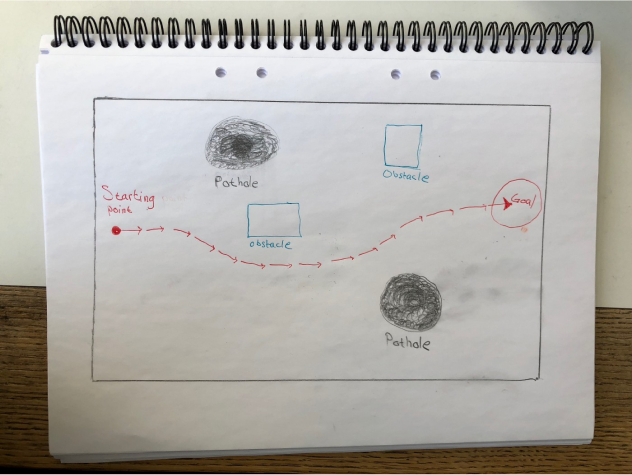 Pothole
Obstacle
Starting
point
Goal
obstacle
Pothole